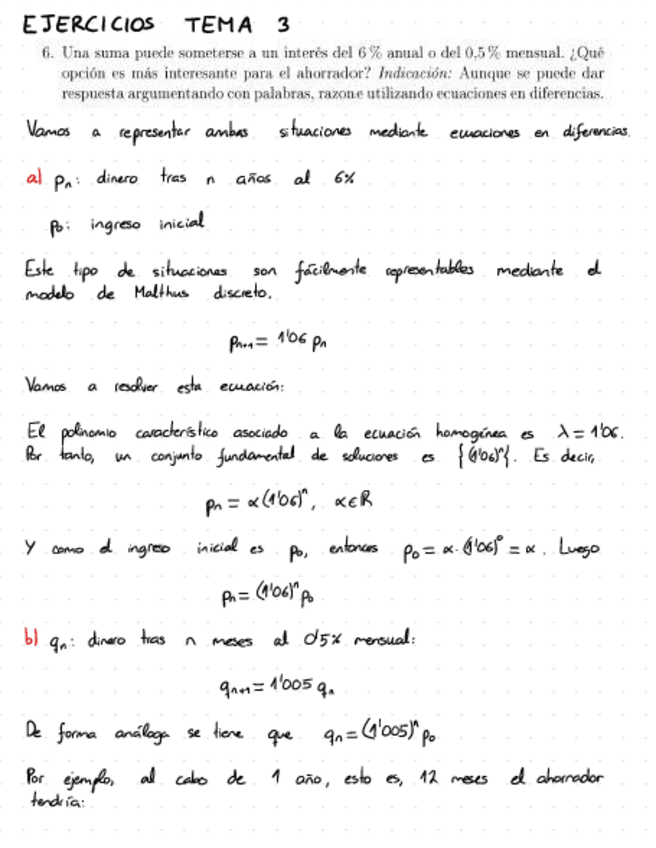 EJERCICIOS TEMA 3
6. Una suma puede someterse a un interés del 6 % anual o del 0.5 % mensual. ¿Qué
opción es más interesante para el ahorrador? Indicación: Aunque se puede dar
respuesta argumentando con palabras, razone utilizando ecuaciones en diferencias.
Vamos a representar ambas situaciones mediante ecuaciones en diferencias.
a) pₙ: dinero tras n años al 6%
p₀: ingreso inicial
Este tipo de situaciones son fácilmente representables mediante el
modelo de Malthus discreto.
pₙ₊₁ = 1'06 pₙ
Vamos a resolver esta ecuación:
El polinomio característico asociado a la ecuación homogénea es λ = 1'06.
Por tanto, un conjunto fundamental de soluciones es {(1'06)ⁿ}. Es decir,
pₙ = α(1'06)ⁿ, α∈R
Y como el ingreso inicial es p₀, entonces p₀ = α·(1'06)⁰ = α. Luego
pₙ = (1'06)ⁿ p₀
b) qₙ: dinero tras n meses al 0'5% mensual:
qₙ₊₁ = 1'005 qₙ
De forma análoga se tiene que qₙ = (1'005)ⁿ p₀
Por ejemplo, al cabo de 1 año, esto es, 12 meses el ahorrador
tendría: